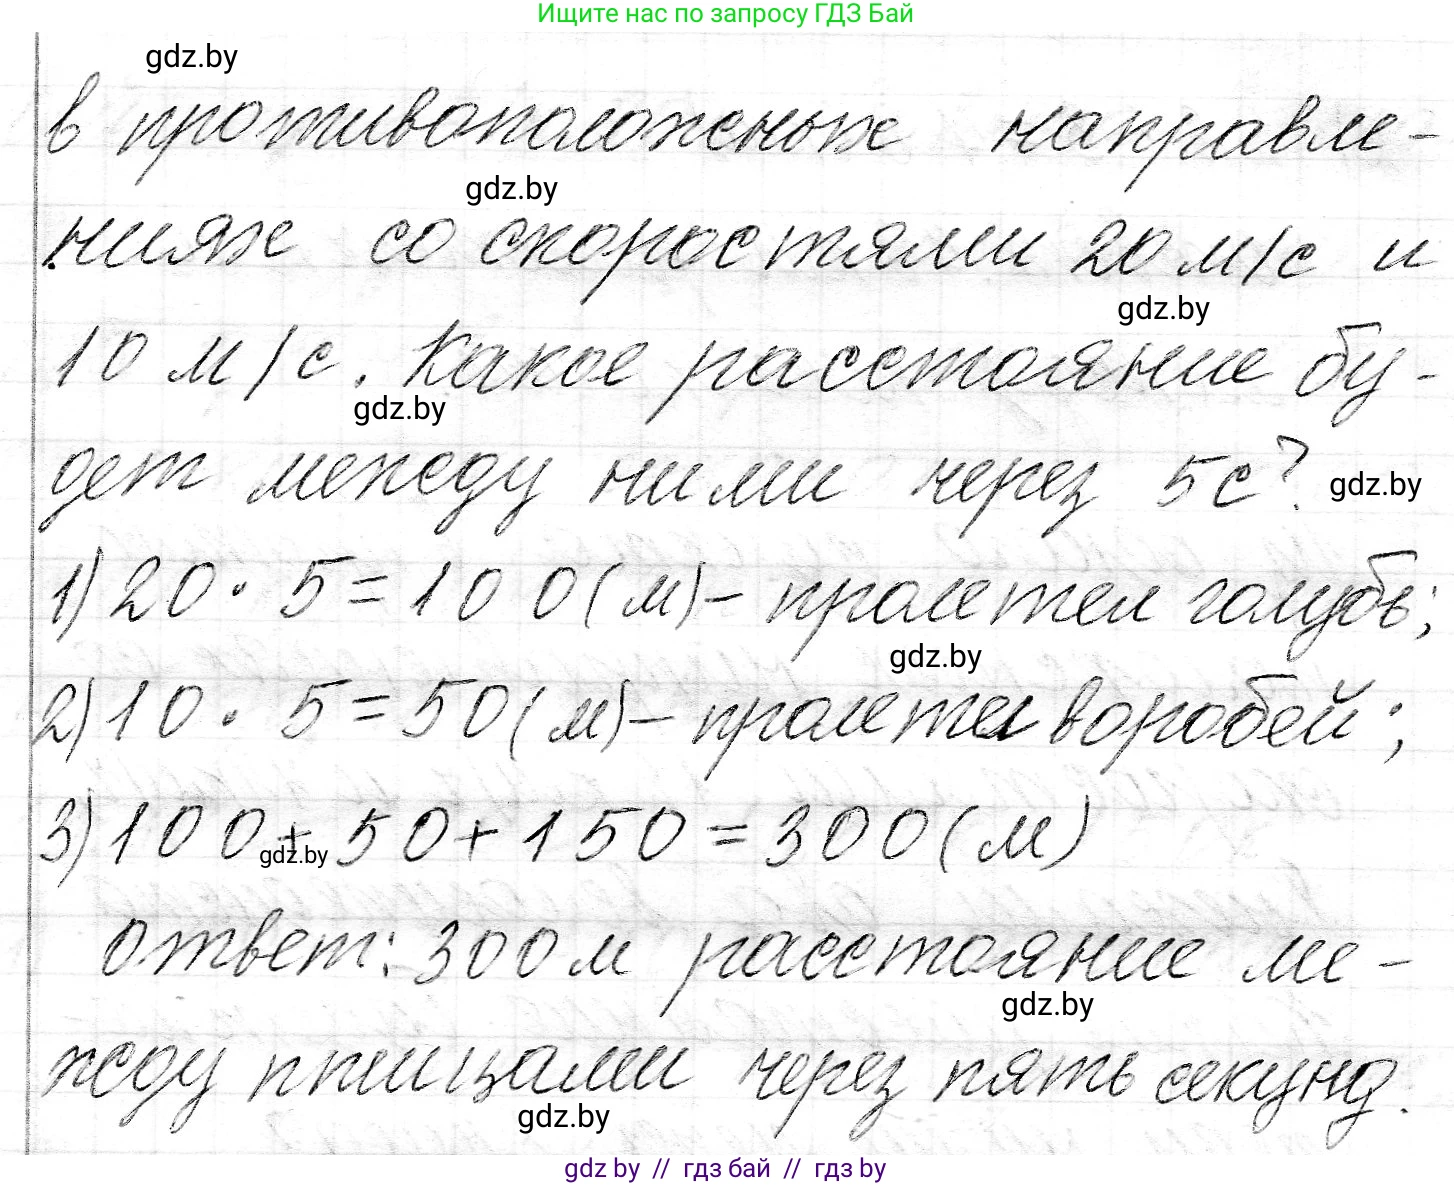 Ищите нас по запросу ГДЗ Бай
gdz.by
в противоположных направле-
gdz.by
ниях со скоростями 20 м/с и
gdz.by
10 м/с. Какое расстояние бу-
gdz.by
дет между ними через 5с?
gdz.by
1) 20 · 5 = 100 (м) – пролетел голубь;
gdz.by
2) 10 · 5 = 50 (м) – пролетел воробей;
3) 100 + 50 + 150 = 300 (м)
gdz.by
ответ: 300 м расстояние ме-
gdz.by
жду птицами через пять секунд.
gdz.by
gdz by // гдз бай // гдз by